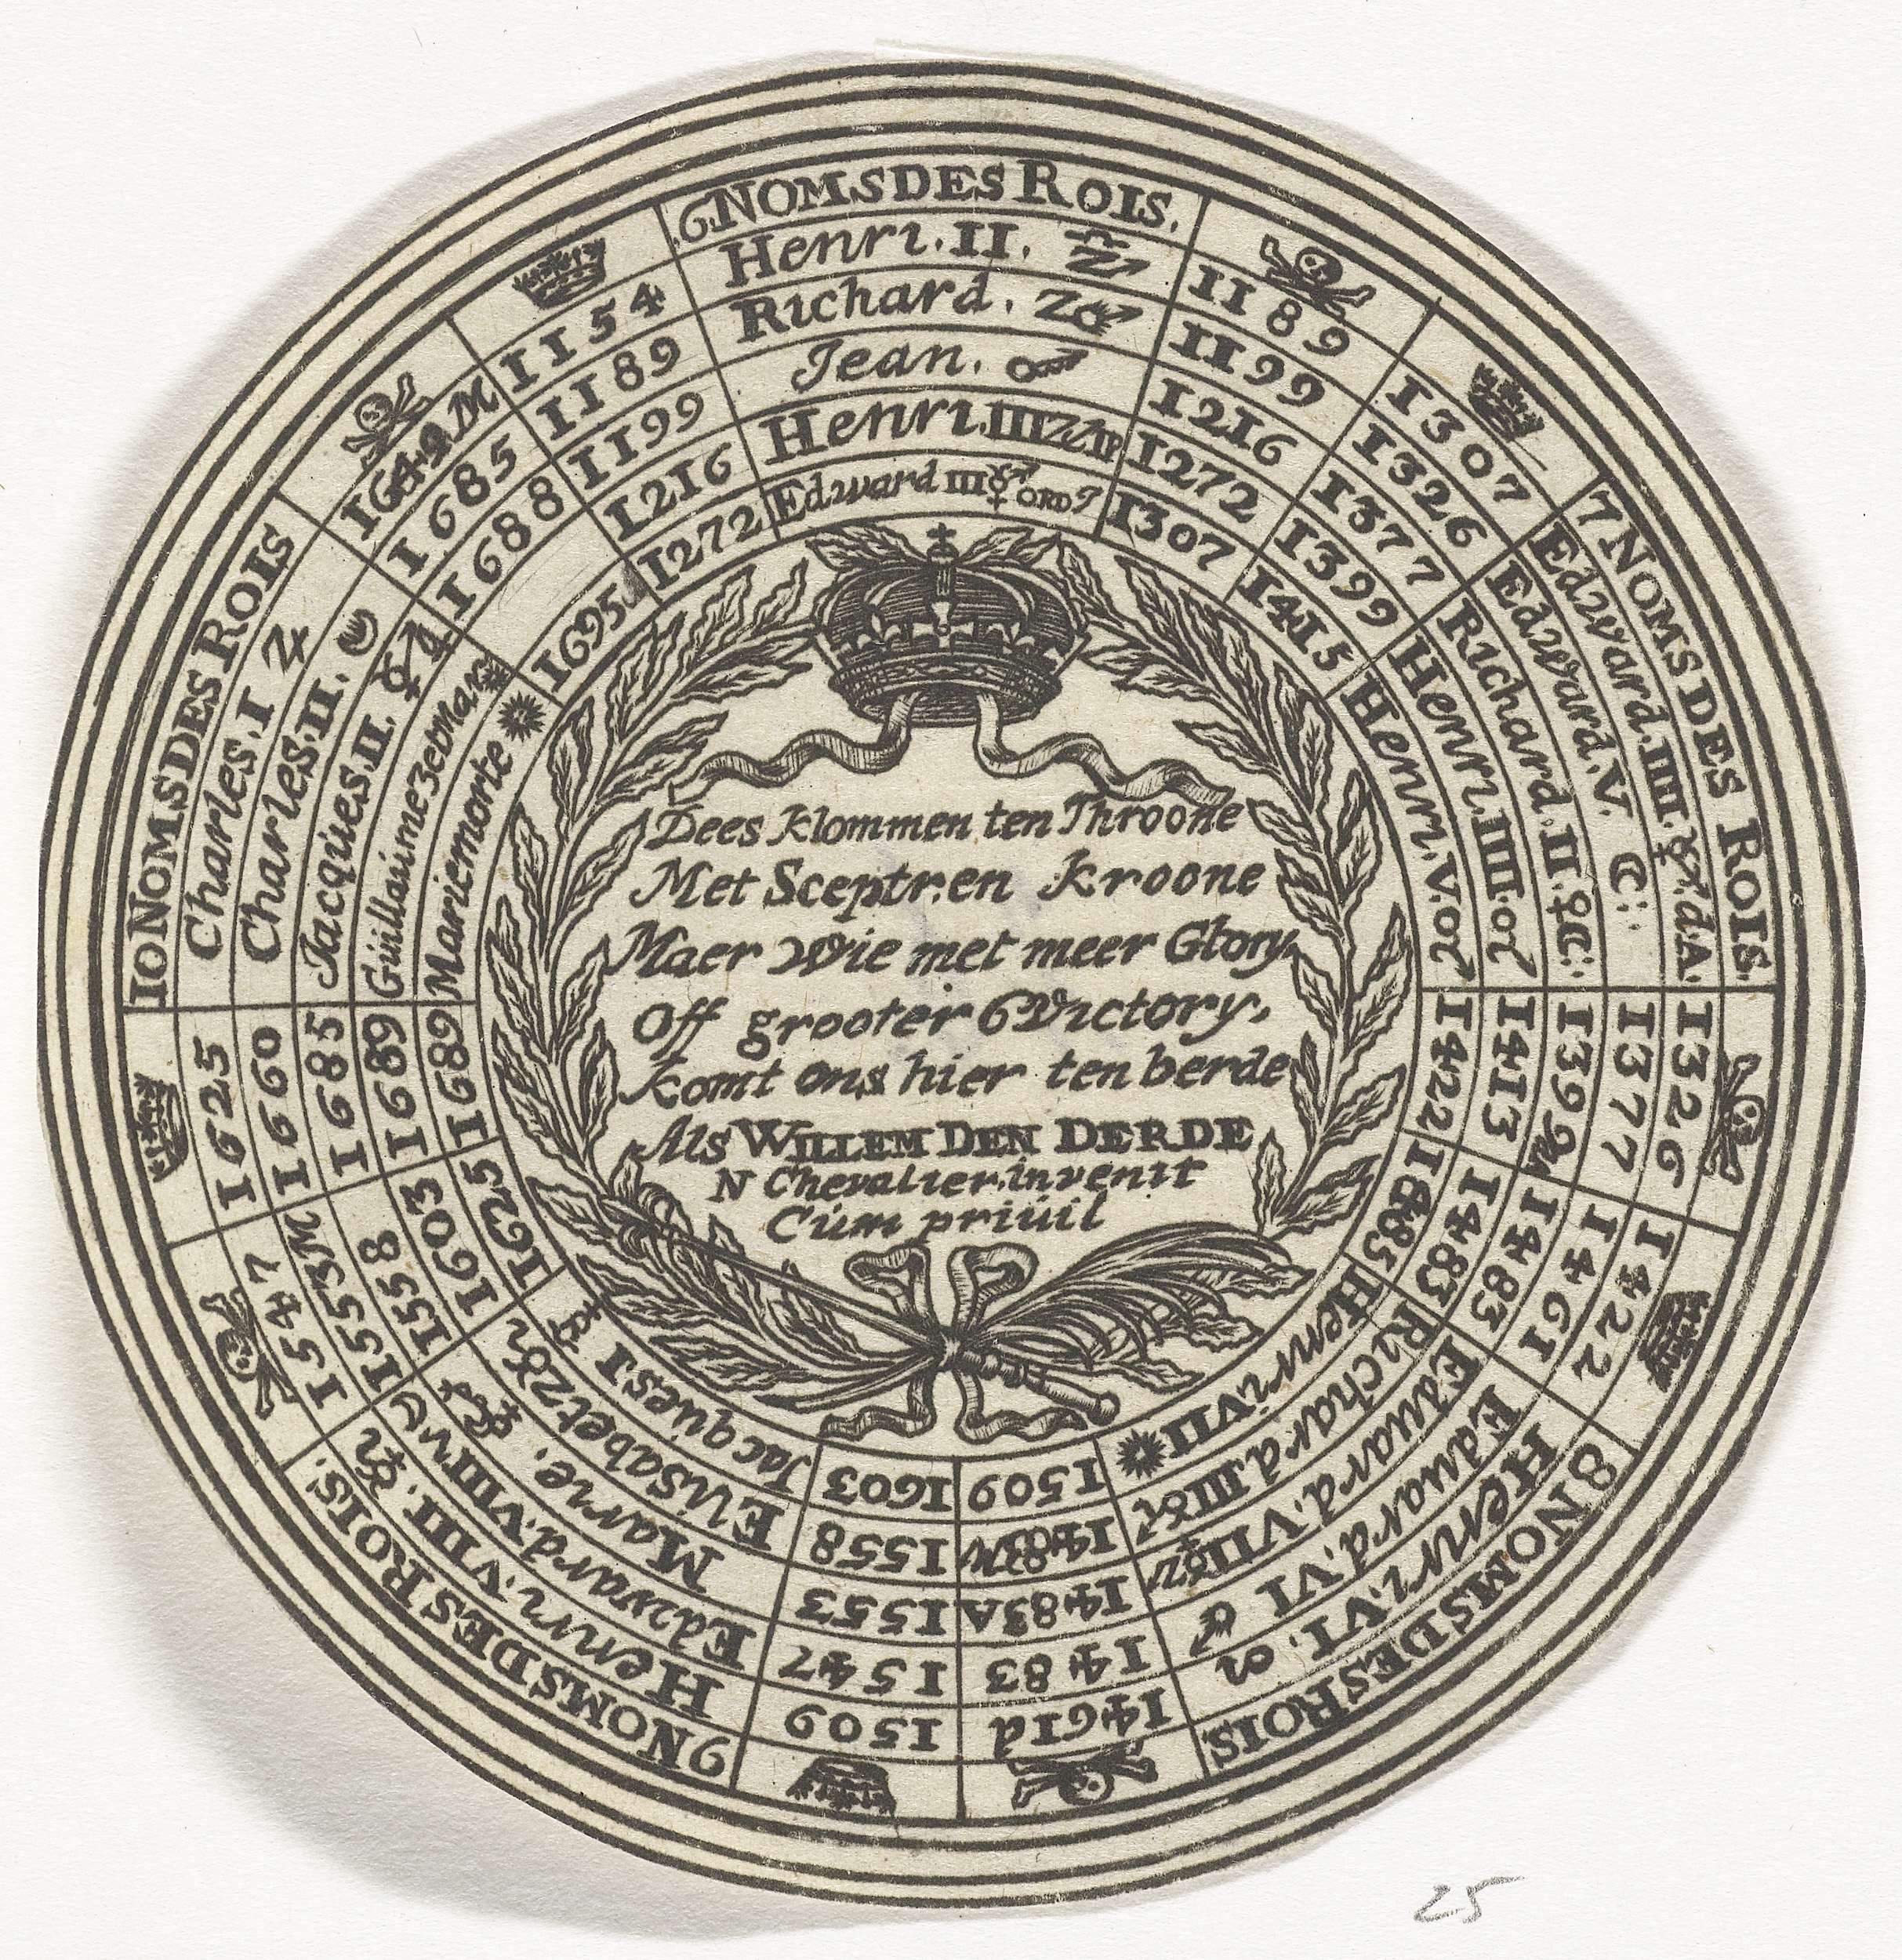 6 NOMS DES ROIS.
1154 Henri. II. 1189
1189 Richard. 1199
1199 Jean. 1216
1216 Henri. III 1272
1272 Edward III ORD 1307
7 NOMS DES ROIS.
1307 Edward. IIII. dA. 1326
1326 Edward. V. C: 1377
1377 Richard. II. C: 1399
1399 Henri. IIII. 1413
1415 Henri. V. 1422
8 NOMS DES ROIS.
1422 Henri. VI. 1461d
1461 Eduard. VI 1483
1483 Eduard. VII 1483A
1483 Richard. III 1483
1485 Henri. VII 1509
9 NOMS DES ROIS.
1509 Henri. VIII. 1547
1547 Edward. VIII 1553M
1553 Marie. 1558
1558 Elisabet 1603
1603 Jacques I 1625
10 NOMS DES ROIS
1625 Charles. I 1649M
1660 Charles. II. 1685
1685 Jacques II. 1688
1689 Guillaiume 3 et Mar
1689 Marie morte 1695
Dees klommen ten Throone
Met Sceptr. en kroone
Maer Wie met meer Glory,
Off grooter Victory,
komt ons hier ten berde
Als WILLEM DEN DERDE
N Chevalier. invenit
Cum priuil
25